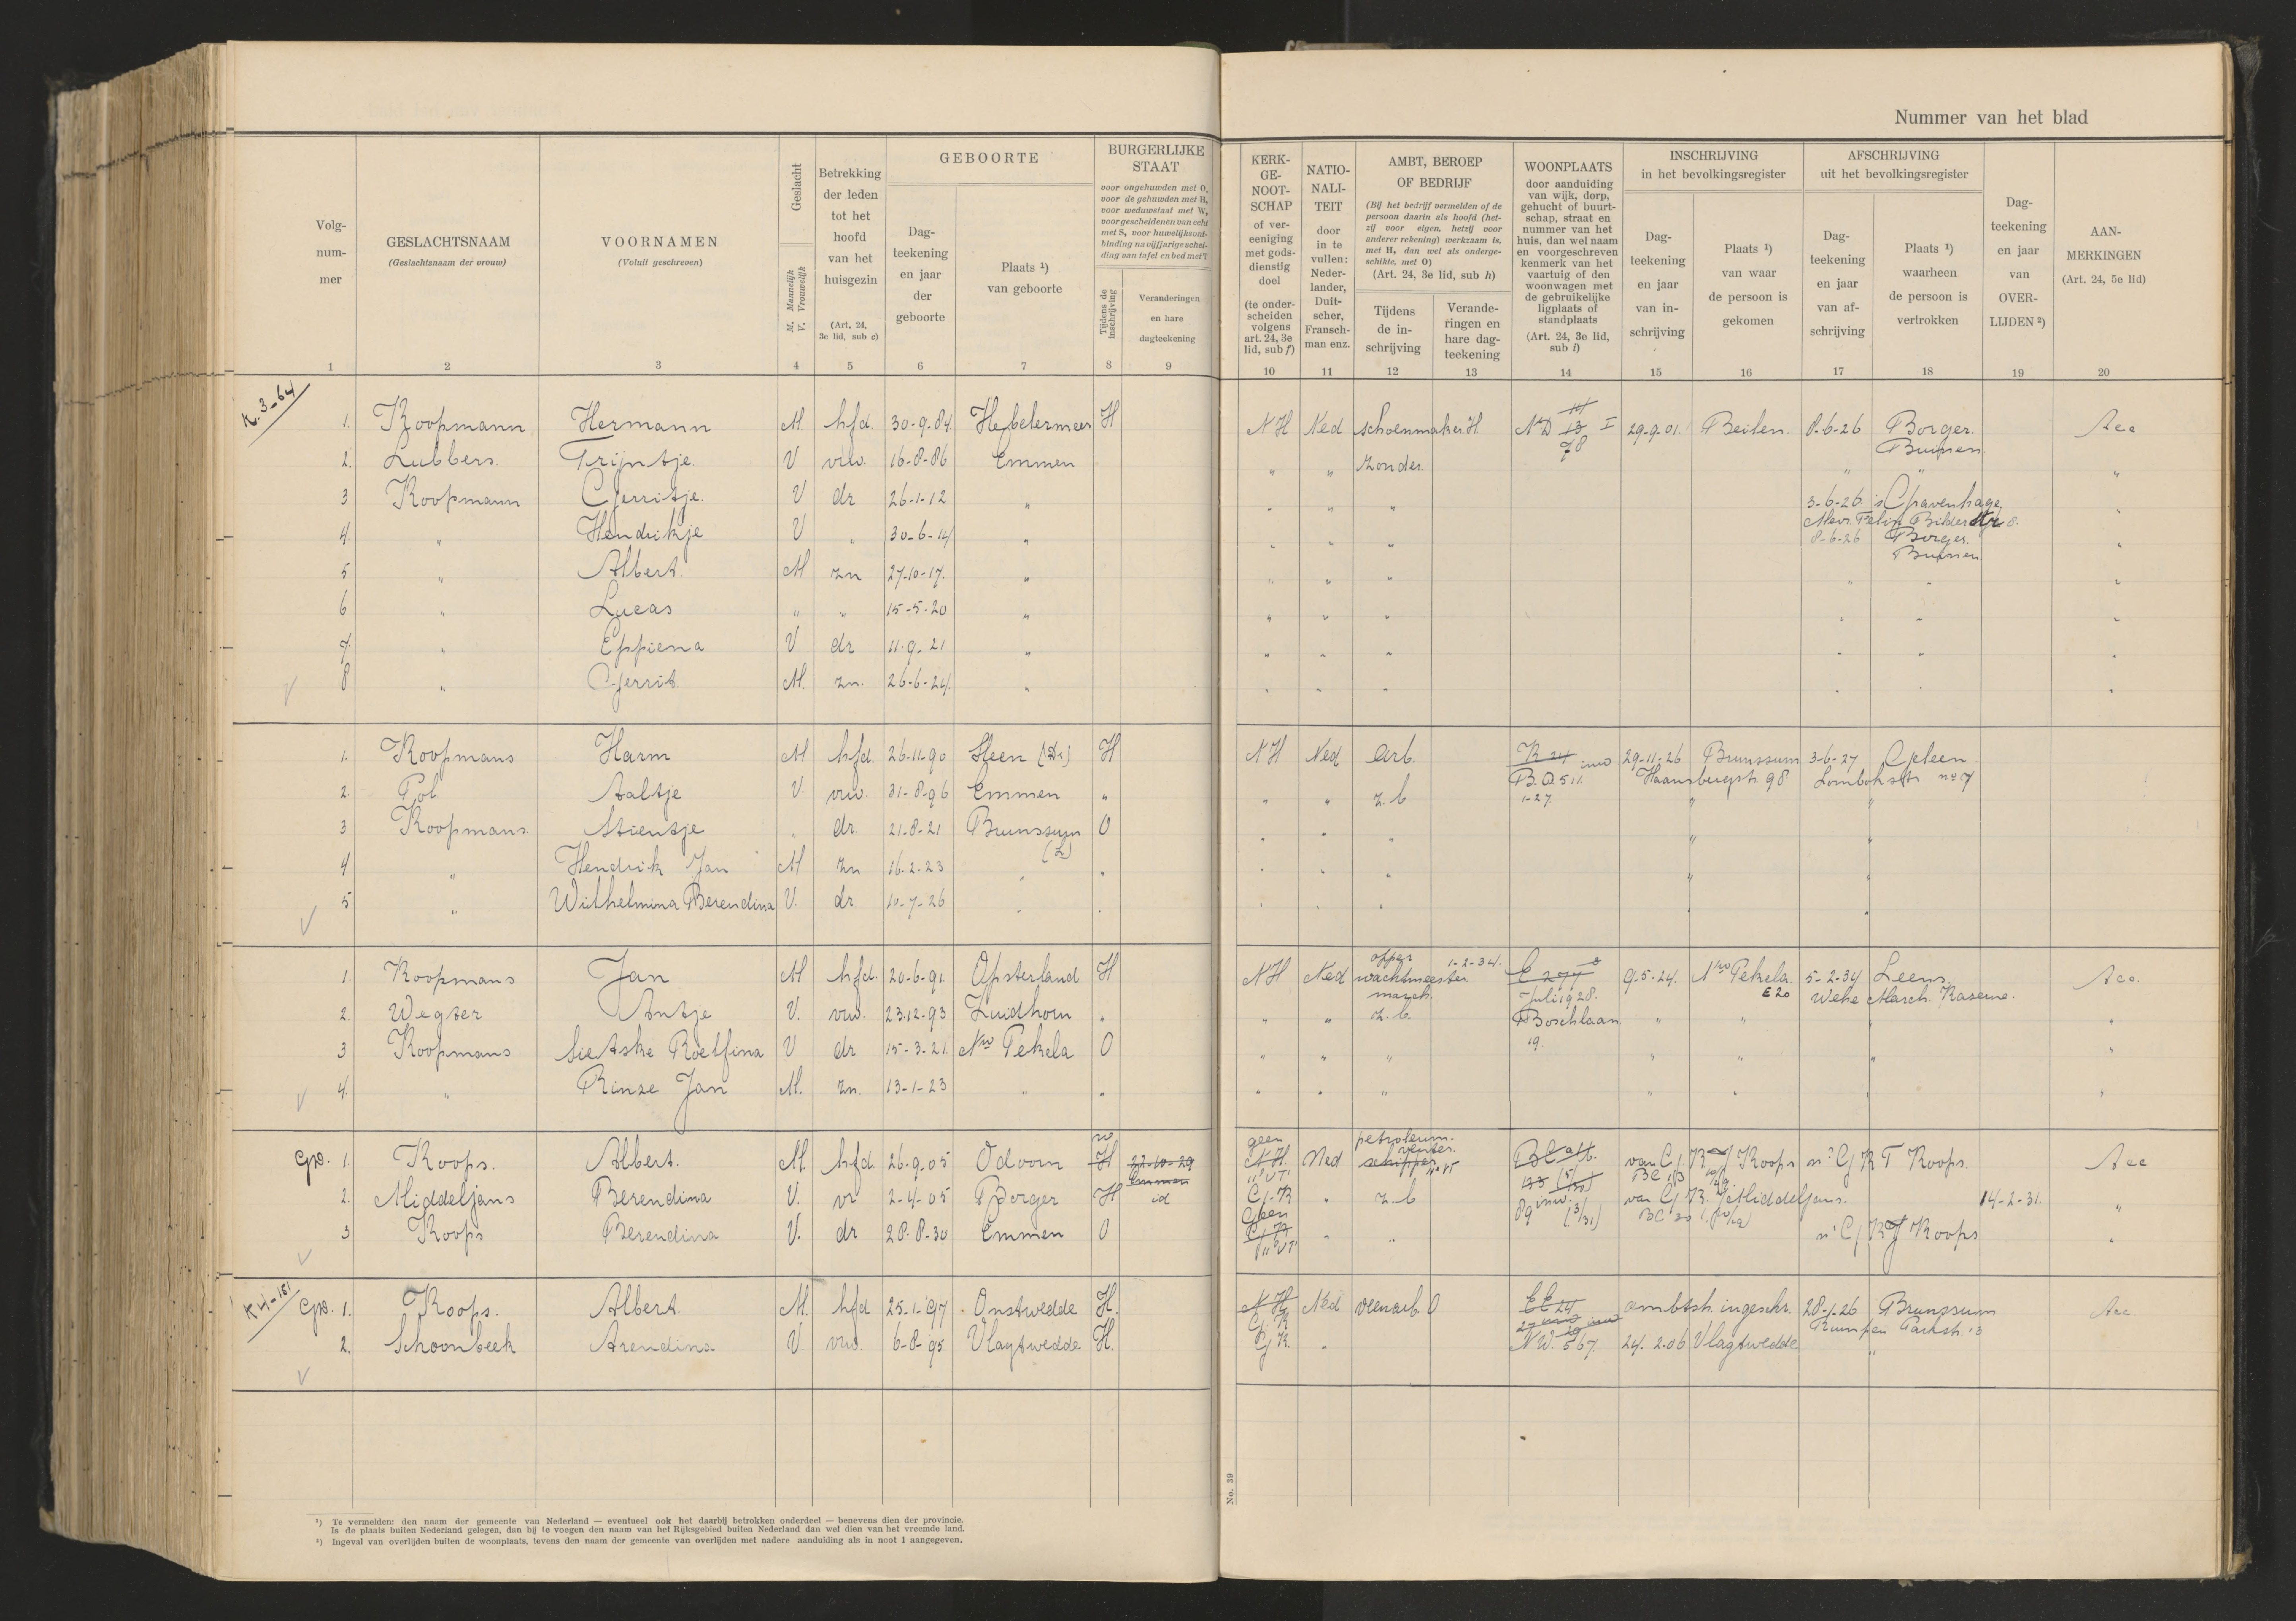 Nummer van het blad
Volg-
num-
mer
GESLACHTSNAAM
(Geslachtsnaam der vrouw)
VOORNAMEN
(Voluit geschreven)
Geslacht
M. Mannelijk
V. Vrouwelijk
Betrekking
der leden
tot het
hoofd
van het
huisgezin
(Art. 24,
3e lid, sub c)
GEBOORTE
Dag-
teekening
en jaar
der
geboorte
Plaats ¹)
van geboorte
BURGERLIJKE
STAAT
voor ongehuwden met O,
voor de gehuwden met H,
voor weduwstaat met W,
voor gescheidenen van echt
met S, voor huwelijksont-
binding na vijfjarige schei-
ding van tafel en bed met T
Tijdens de
inschrijving
Veranderingen
en hare
dagteekening
KERK-
GE-
NOOT-
SCHAP
of ver-
eeniging
met gods-
dienstig
doel
(te onder-
scheiden
volgens
art. 24, 3e
lid, sub f)
NATIO-
NALI-
TEIT
door
in te
vullen:
Neder-
lander,
Duit-
scher,
Fransch-
man enz.
AMBT, BEROEP
OF BEDRIJF
(Bij het bedrijf vermelden of de
persoon daarin als hoofd (het-
zij voor eigen, hetzij voor
anderer rekening) werkzaam is,
met H, dan wel als onderge-
schikte, met O)
(Art. 24, 3e lid, sub h)
Tijdens
de in-
schrijving
Verande-
ringen en
hare dag-
teekening
WOONPLAATS
door aanduiding
van wijk, dorp,
gehucht of buurt-
schap, straat en
nummer van het
huis, dan wel naam
en voorgeschreven
kenmerk van het
vaartuig of den
woonwagen met
de gebruikelijke
ligplaats of
standplaats
(Art. 24, 3e lid,
sub i)
INSCHRIJVING
in het bevolkingsregister
Dag-
teekening
en jaar
van in-
schrijving
Plaats ¹)
van waar
de persoon is
gekomen
AFSCHRIJVING
uit het bevolkingsregister
Dag-
teekening
en jaar
van af-
schrijving
Plaats ¹)
waarheen
de persoon is
vertrokken
Dag-
teekening
en jaar
van
OVER-
LIJDEN ²)
AAN-
MERKINGEN
(Art. 24, 5e lid)
1 2 3 4 5 6 7 8 9 10 11 12 13 14 15 16 17 18 19 20
K. 3-64
1. Koopmann Hermann M. hfd. 30-9-84. Hebelermeer H NH Ned schoenmaker H. 29-9-01. Beilen. 8-6-26 Borger. Acc
Buinen
2. Lubbers. Trijntje. V vrw. 16-8-86 Emmen " " zonder. " " "
3 Koopmann Gerritje. V dr 26-1-12 " " " " 3-6-26 's Gravenhage "
4. " Hendrikje V " 30-6-14 " " " " 8-6-26 Borger. "
Buinen
5 " Albert. M zn 27-10-17. " " " " " " "
6 " Lucas " " 15-5-20 " " " " " " "
7. " Eppiena V dr 11-9-21 " " " " " " "
8 " Gerrit. M. zn. 26-6-24. " " " " " " "
1. Koopmans Harm M hfd. 26-11-90 Sleen (Dr) H NH Ned arb. K 24 29-11-26 Brunssum 3-6-27 Geleen
Haansbergstr. 98 Lombokstr no 7
2. Pol Aaltje V. vrw. 31-8-96 Emmen " " " z.b 1-27. " "
3 Koopmans. Stientje " dr. 21-8-21 Brunssum O " " " " "
(L)
4 " Hendrik Jan M zn 16-2-23 " " " " " " "
5 " Wilhelmina Berendina V. dr. 10-7-26 " " " " " " "
1. Koopmans Jan M hfd. 20-6-91. Opsterland H NH Ned opper 1-2-34.
wachtmeester
march. 9-5-24. Nwe Pekela. 5-2-34 Leens Acc.
E 20 Wehe March. Kaserne.
2. Wegter Antje V. vrw. 23-12-93 Zuidhorn " " " z.b. Juli 1928.
Boschlaan
19. " " " "
3 Koopmans Sietske Roelfina V dr 15-3-21. Nwe Pekela O " " " " " " "
4. " Rinze Jan M. zn. 13-1-23 " " " " " " " " "
Gez. 1. Koops. Albert. M. hfd. 26-9-05 Odoorn H 22-10-29
Emmen
geen NH Ned petroleum-
venter.
schipper Koops Koops. Acc
2. Middeljans Berendina V. vr 2-4-05 Borger H id " z.b Middeljans. 14-2-31. "
3 Koops Berendina V. dr 28-8-30 Emmen O " " Koops "
K 4-181
Gez. 1. Koops. Albert. M. hfd 25-1-97 Onstwedde H. NH Ned veenarb. O ambtsh. ingeschr. 28-1-26 Brunssum Acc
Rumpen Parkstr. 13
2. Schoonbeek Arendina V. vrw. 6-8-95 Vlagtwedde H. G K. " NW. 567. 24-2-06 Vlagtwedde "
No. 39
¹) Te vermelden: den naam der gemeente van Nederland — eventueel ook het daarbij betrokken onderdeel — benevens dien der provincie.
Is de plaats buiten Nederland gelegen, dan bij te voegen den naam van het Rijksgebied buiten Nederland dan wel dien van het vreemde land.
²) Ingeval van overlijden buiten de woonplaats, tevens den naam der gemeente van overlijden met nadere aanduiding als in noot 1 aangegeven.